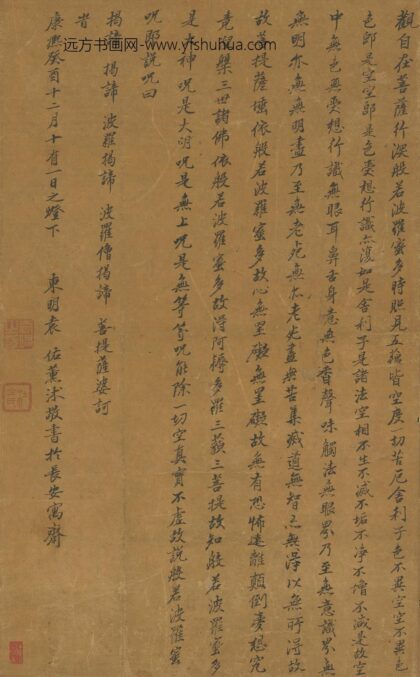 远方书画网-www.yfshuhua.com
觀自在菩薩行深般若波羅蜜多時照見五蘊皆空度一切苦厄舍利子色不異空空不異色
色即是空空即是色受想行識亦復如是舍利子是諸法空相不生不滅不垢不淨不增不減是故空
中無色無受想行識無眼耳鼻舌身意無色香聲味觸法無眼界乃至無意識界無
無明亦無無明盡乃至無老死無亦老死盡無苦集滅道無智亦無得以無所得故
故菩提薩埵依般若波羅蜜多故心無罣礙無罣礙故無有恐怖遠離顛倒夢想究
竟涅槃三世諸佛依般若波羅蜜多故得阿耨多羅三藐三菩提故知般若波羅蜜多
是大神呪是大明呪是無上呪是無等等呪能除一切空真實不虛故說般若波羅蜜
呪即說呪曰
揭諦 揭諦 波羅揭諦 波羅僧揭諦 菩提薩婆訶
康熙癸酉十二月十有一日之燈下 東明袁佑薰沐敬書於長安寓齋